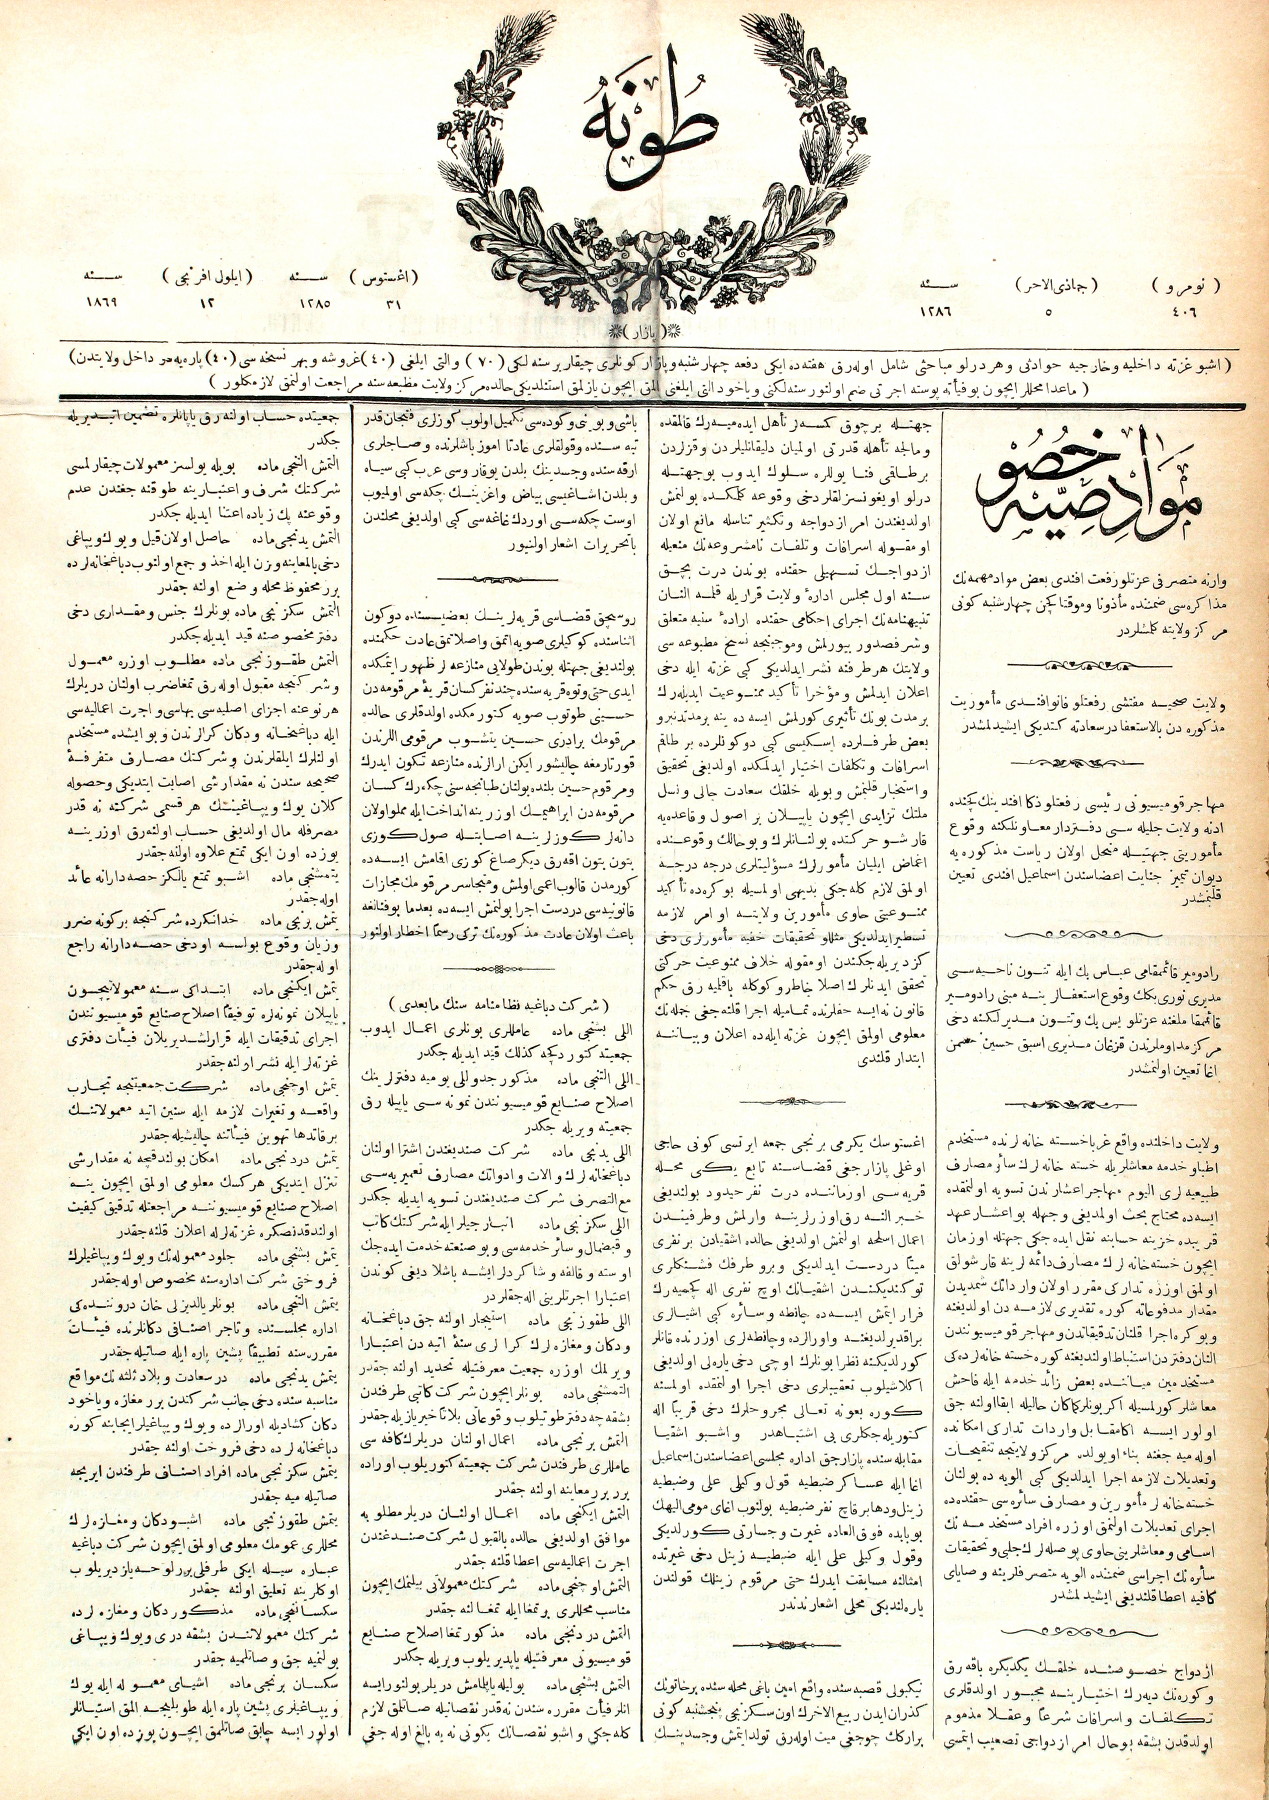 طونه
( نومرو )
٤٠٦
( جماذی الاخر )
٥
سنه
١٢٨٦
( اغستوس )
٣١
سنه
١٢٨٥
( ایلول افرنجی )
١٢
سنه
١٨٦٩
( بازار )
( اشبو غزته داخلیه و خارجیه حوادثی و هر درلو مباحثی شامل اوله‌رق هفته‌ده ایکی دفعه چهارشنبه و بازار کونلری چیقار بر سنه لکی ( ٧٠ ) و التی ایلغی ( ٤٠ ) غروشه و بهر نسخه سی ( ٤٠ ) پاره‌یه در داخل ولایتدن )
( ماعدا محللر ایچون بو فیأته پوسته اجرتی ضم اولنور سنه لکنی و یاخود التی ایلغنی المق ایچون یازلمق استنلدیکی حالده مرکز ولایت مطبعه سنه مراجعت اولنمق لازمکلور )
مواد خصوصیه
وارنه متصرفی عزتلو رفعت افندی بعض مواد مهمه‌نك
مذاکره سی ضمننده مأذونا و موقتا کچن چهارشنبه کونی
مرکز ولایته کلمشلردر
ولایت صحیه مفتشی رفعتلو قانوا فندی مأموریت
مذکوره دن بالاستعفا در سعادته کتدیکی ایشیدلمشدر
مهاجر قومیسیونی رئیسی رفعتلو ذکا افندینك کچنده
ادنه ولایت جلیله سی دفتردار معاونلکنه وقوع
مأموریتی جهتیله منحل اولان ریاست مذکوره یه
دیوان تمیز جنایت اعضاسندن اسماعیل افندی تعیین
قلنمشدر
رادومیر قائمقامی عباس بك ایله تنون ناحیه سی
مدیری نوری بكك وقوع استعفالرینه مبنی رادومیر
قائمقاملغنه عزتلو یس بك و تنون مدیرلکنه دخی
مرکز مداوملرندن قزغان مدیری اسبق حسین حسن
اغا تعیین اولنمشدر
ولایت داخلنده واقع غربا خسته خانه لرنده مستخدم
اطبا و خدمه معاشلریله خسته خانه لرك سائر مصارف
طبیعیه لری الیوم مهاجر اعشارندن تسویه اولنمقده
ایسه‌ده محتاج بحث اولمدیغی وجهله بو اعشار عهد
قریبده خزینه حسابنه نقل ایده‌جکی جهتله اوزمان
ایچون خسته خانه لرك مصارف دائمه لرینه قارشولق
اولمق اوزره تدارکی مقرر اولان وارداتك شمدیدن
مقدار مدفوعاته کوره تقدیری لازمه دن اولدیغنه
و بو کره اجرا قلنان تدقیقاتدن و مهاجر قومیسیونندن
النان دفتردن استنباط اولندیغنه کوره خسته خانه لرده کی
مستخدمین میاننده بعض زائد خدمه ایله فاحش
معاشلر کورلمسیله اکر بونلر کماکان حالیله ابقا اولنه جق
اولور ایسه اکا مقابل واردات تدارکی امکانده
اوله میه جغنه بناء اولبولده مرکز ولایتجه تنقیحات
و تعدیلات لازمه اجرا ایدلدیکی کبی الویه ده بولنان
خسته خانه لر مأمورین و مصارف سائره سی حقنده ده
اجرای تعدیلات اولنمق اوزره افراد مستخدمه نك
اسامی و معاشلرینی حاوی پوصله لرك جلبی و تحقیقات
سائره نك اجراسی ضمننده الویه متصرفلرینه وصایای
کافیه اعطا قلندیغی ایشیدلمشدر
ازدواج خصوصنده خلقك یکدیکره باقه رق
و کوره نك دیه رك اختیارینه مجبور اولدقلری
تکلفات و اسرافات شرعا و عقلا مذموم
اولدقدن بشقه بو حال امر ازدواجی تصعیب ایتمسی
جهتله برچوق کسه لر تأهل ایده میه رك قالمقده
و مالجه تأهله قدرتی اولمیان دلیقانلیلردن و قزلردن
برطاقی فنا یوللره سلوك ایدوب بوجهتله
درلو اویغونسزلقلر دخی وقوعه کلمکده بولنمش
اولدیغندن امر ازدواجه و تکثیر تناسله مانع اولان
او مقوله اسرافات و تلفات نامشروعه نك منعیله
ازدواجك تسهیلی حقنده بوندن درت بچق
سنه اول مجلس اداره ولایت قراریله قلمه النان
تنبیهنامه نك اجرای احکامی حقنده اراده سنیه متعلق
و شرفصدور بیورلمش و موجبنجه نسخ مطبوعه سی
ولایتك هر طرفنه نشر ایدلدیکی کبی غزته ایله دخی
اعلان ایدلمش و مؤخرا تأکید ممنوعیت ایدیله رك
بر مدت بونك تأثیری کورلمش ایسه ده ینه بر مدتدنبرو
بعض طرفلرده اسکیسی کبی دوکونلرده بر طاقم
اسرافات و تکلفات اختیار ایدلمکده اولدیغی تحقیق
و استخبار قلنمش و بویله خلقك سعادت حالی و نسل
ملتك تزایدی ایچون یاپیلان بر اصول و قاعده یه
قارشو حرکتده بولنانلرك و بو حالك وقوعنده
اغماض ایلیان مأمورلرك مسؤلیتلری درجه درجه
اولمق لازم کله جکی بدیهی اولمسیله بو کره ده تأکید
ممنوعیتی حاوی مأمورین ولایته اوامر لازمه
تسطیر ایدلدیکی مثللو تحقیقات خفیه مأمورلری دخی
کزدیریله جکندن او مقوله خلاف ممنوعیت حرکتی
تحقق ایدنلرك اصلا خاطر و کوکله باقلمیه رق حکم
قانون نه ایسه حقلرنده تمامیله اجرا قلنه جغی جمله نك
معلومی اولمق ایچون غزته ایله ده اعلان و بیاننه
ابتدار قلندی
اغستوسك یکرمی برنجی جمعه ایرتسی کونی حاجی
اوغلی بازارجغی قضاسنه تابع یکی محله
قریه سی اورماننده درت نفر حیدود بولندیغی
خبر النه رق اوزرلرینه وارلمش و طرفیندن
اعمال اسلحه اولنمش اولدیغی حالده اشقیادن بر نفری
میتا دردست ایدلدیکی و برو طرفك فشنکلری
توکندیکندن اشقیانك اوچ نفری اله کچمیه رك
فرار ایتمش ایسه ده چانطه و سائره کبی اشیالری
براقدیرلدیغنه و اورالرده و چانطه لری اوزرنده قانلر
کورلدیکنه نظرا بونلرك اوچی دخی یاره لی اولدیغی
اکلاشیلوب تعقیبلری دخی اجرا اولنمقده اولمسنه
کوره بعونه تعالی مجروحلرك دخی قریبا اله
کتوریله جکلری بی اشتباهدر و اشبو اشقیا
مقابله سنده پازارجق اداره مجلسی اعضاسندن اسماعیل
اغا ایله عساکر ضبطیه قول وکیلی علی و ضبطیه
زینل و دها برقاچ نفر ضبطیه بولنوب اغای مومی الیهك
بو بابده فوق العاده غیرت و جسارتی کورلدیکی
و قول وکیلی علی ایله ضبطیه زینل دخی غیرتده
امثالنه مسابقت ایدرك حتی مرقوم زینلك قولندن
یاره لندیکی محلی اشعارندندر
نیکبولی قصبه سنده واقع امین باغی محله سنده بر خاتونك
کذران ایدن ربیع الاخرك اون سکزنجی پنجشنبه کونی
برارکك چوجغی میت اوله رق تولد ایتمش و جسدینك
باشی و بوینی و کوده سی تکمیل اولوب کوزلری فنجان قدر
تپه سنده و قولقلری عادتا اموز باشلرنده و صاچلری
ارقه سنده و جسدینك بلدن یوقاروسی عرب کبی سیاه
و بلدن اشاغیسی بیاض و اغزینك چکه سی اولمیوب
اوست چکه سی اوردك غاغه سی کبی اولدیغی محلندن
با تحریرات اشعار اولنیور
روسچق قضاسی قریه لرینك بعضیسنده دوکون
اثناسنده کو کیلری صویه اتمق و اصلاتمق عادت حکمنده
بولندیغی جهتله بوندن طولایی منازعه لر ظهور ایتمکده
ایدی حتی و توه قریه سنده چند نفر کسان قریهٔ مرقومه دن
حسینی طوتوب صویه کتورمکده اولدقلری حالده
مرقومك برادری حسین یتشوب مرقومی اللرندن
قورتارمغه چالیشور ایکن ارالرنده منازعه تکون ایدرك
و مرقوم حسین بلنده بولنان طبانجه سنی چکه رك کسان
مرقومه دن ابراهیمك اوزرینه انداخت ایله مملو اولان
دانه لر کوزلرینه اصابتله صول کوزی
بتون بتون اقه رق دیکر صاغ کوزی اقمامش ایسه ده
کورمدن قالوب اعمی اولمش و متجاسر مرقومك مجازات
قانونیه سی دردست اجرا بولنمش ایسه ده بعدما بو فنالغه
باعث اولان عادت مذکوره نك ترکی رسما اخطار اولنور
( شرکت دباغیه نظامنامه سنك مابعدی )
اللی بشنجی ماده عاملاری بونلری اعمال ایدوب
جمعیته کتوردکجه کذلك قید ایدیله جکدر
اللی التنجی ماده مذکور جدوللی یومیه دفترلرینك
اصلاح صنایع قومیسیونندن نمونه سی یاپیله رق
جمعیته ویریله جکدر
اللی یدنجی ماده شرکت صندیغندن اشترا اولنان
دباغخانه لرك و الات و ادواتك مصارف تعمیریه سی
مع التصرف شرکت صندیغندن تسویه ایدیله جکدر
اللی سکزنجی ماده انبارجیلر ایله شرکتك کاتب
و قبضمال و سائر خدمه سی و بو صنعته خدمت ایده جك
اوسته و قالفه و شاکردلر ایشه باشلادیغی کوندن
اعتبارا اجرتلرینی اله جقلردر
اللی طقوزنجی ماده استیجار اولنه جق دباغخانه
و دکان و مغازه لرك کرالری سنهٔ اتیه دن اعتبارا
ویرلمك اوزره جمعیت معرفتیله تحدید اولنه جقدر
التمشنجی ماده بونلر ایچون شرکت کاتبی طرفندن
بشقه جه دفتر طوتیلوب وقوعاتی بلا تأخیر یازیله جقدر
التمش برنجی ماده اعمال اولنان دریلرك کافه سی
عاملاری طرفندن شرکت جمعیته کتوریلوب اوراده
برر برر معاینه اولنه جقدر
التمش ایکنجی ماده اعمال اولنان دریلر مطلوبه
موافق اولدیغی حالده بالقبول شرکت صندیغندن
اجرت اعمالیه سی اعطا قلنه جقدر
التمش اوچنجی ماده شرکتك معمولاتی بیلنمك ایچون
مناسب محللری بر تمغا ایله تمغالنه جقدر
التمش دردنجی ماده مذکور تمغا اصلاح صنایع
قومیسیونی معرفتیله یاپدیریلوب ویریله جکدر
التمش بشنجی ماده بویله یاپلمامش دریلر بولنور ایسه
انلر فیأت مقرره سندن نه قدر نقصانیله صاتلمق لازم
کله جکی و اشبو نقصانك یکونی نه یه بالغ اوله جغی
جمعیتده حساب اولنه رق یاپانلره تضمین ایتدیریله
جکدر
التمش التنجی ماده بویله یولسز معمولات چیقارلمسی
شرکتك شرف و اعتبارینه طوقنه جغندن عدم
وقوعنه پك زیاده اعتنا ایدیله جکدر
التمش یدنجی ماده حاصل اولان قیل و یوك و یپاغی
دخی بالمعاینه وزن ایله اخذ و جمع اولنوب دباغخانه لرده
برر محفوظ محله وضع اولنه جقدر
التمش سکزنجی ماده بونلرك جنس و مقداری دخی
دفتر مخصوصنه قید ایدیله جکدر
التمش طقوزنجی ماده مطلوب اوزره معمول
و شرکتجه مقبول اوله رق تمغا ضرب اولنان دریلرك
هر نوعنه اجزای اصلیه سی بهاسی و اجرت اعمالیه سی
ایله دباغخانه و دکان کرالرندن و بو ایشده مستخدم
اولنلرك ایلقلرندن و شرکتك مصارف متفرقهٔ
صحیحه سندن نه مقدارشی اصابت ایتدیکی و حصوله
کلان یوك و یپاغینك هر قسمی شرکته نه قدر
مصرفله مال اولدیغی حساب اولنه رق اوزرینه
یوزده اون ایکی تمتع علاوه اولنه جقدر
یتمشنجی ماده اشبو تمتع یالکز حصه دارانه عائد
اوله جقدر
یتمش برنجی ماده خدانکرده شرکتجه برکونه ضرر
و زیان وقوع بولسه او دخی حصه دارانه راجع
اوله جقدر
یتمش ایکنجی ماده ابتداکی سنه معمولاتیچون
یاپیلان نمونه لره توفیقا اصلاح صنایع قومیسیونندن
اجرای تدقیقات ایله قرارلشدیریلان فیئات دفتری
غزته لر ایله نشر اولنه جقدر
یتمش اوچنجی ماده شرکت جمعیتنجه تجارب
واقعه و تغیرات لازمه ایله سنین اتیه معمولاتنك
برقاتدها تهوین فیئاتنه چالیشیله جقدر
یتمش دردنجی ماده امکان بولندقجه نه مقدارشی
تنزل ایتدیکی هرکسك معلومی اولمق ایچون ینه
اصلاح صنایع قومیسیوننه مراجعتله تدقیق کیفیت
اولندقدنصکره غزته لر له اعلان قلنه جقدر
یتمش بشنجی ماده جلود معموله نك و یوك و یپاغیلرك
فروختی شرکت اداره سنه مخصوص اوله جقدر
یتمش التنجی ماده بونلر یالدیزلی خان دروننده کی
اداره مجلسنده و تاجر اصنافی دکانلرنده فیئات
مقرره سنه تطبیقا پشین پاره ایله صاتیله جقدر
یتمش یدنجی ماده در سعادت و بلاد ثلثه نك مواقع
مناسبه سنده دخی جانب شرکتدن برر مغازه و یاخود
دکان کشادیله اورالرده و یوك و یپاغیلر ایجابنه کوره
دباغخانه لرده دخی فروخت اولنه جقدر
یتمش سکزنجی ماده افراد اصناف طرفندن ایریجه
صاتیله میه جقدر
یتمش طقوزنجی ماده اشبو دکان و مغازه لرك
محللری عمومك معلومی اولمق ایچون شرکت دباغیه
عباره سیله ایکی طرفلی برر لوحه یازدیریلوب
اوکلرینه تعلیق اولنه جقدر
سکسانجی ماده مذکور دکان و مغازه لرده
شرکتك معمولاتندن بشقه دری و یوك و یپاغی
بولنمیه جق و صاتلمیه جقدر
سکسان برنجی ماده اشیای معموله ایله یوك
و یپاغیلری پشین پاره ایله طوپلیجه المق استیانلر
اولور ایسه چابق صاتلمق ایچون یوزده اون ایکی